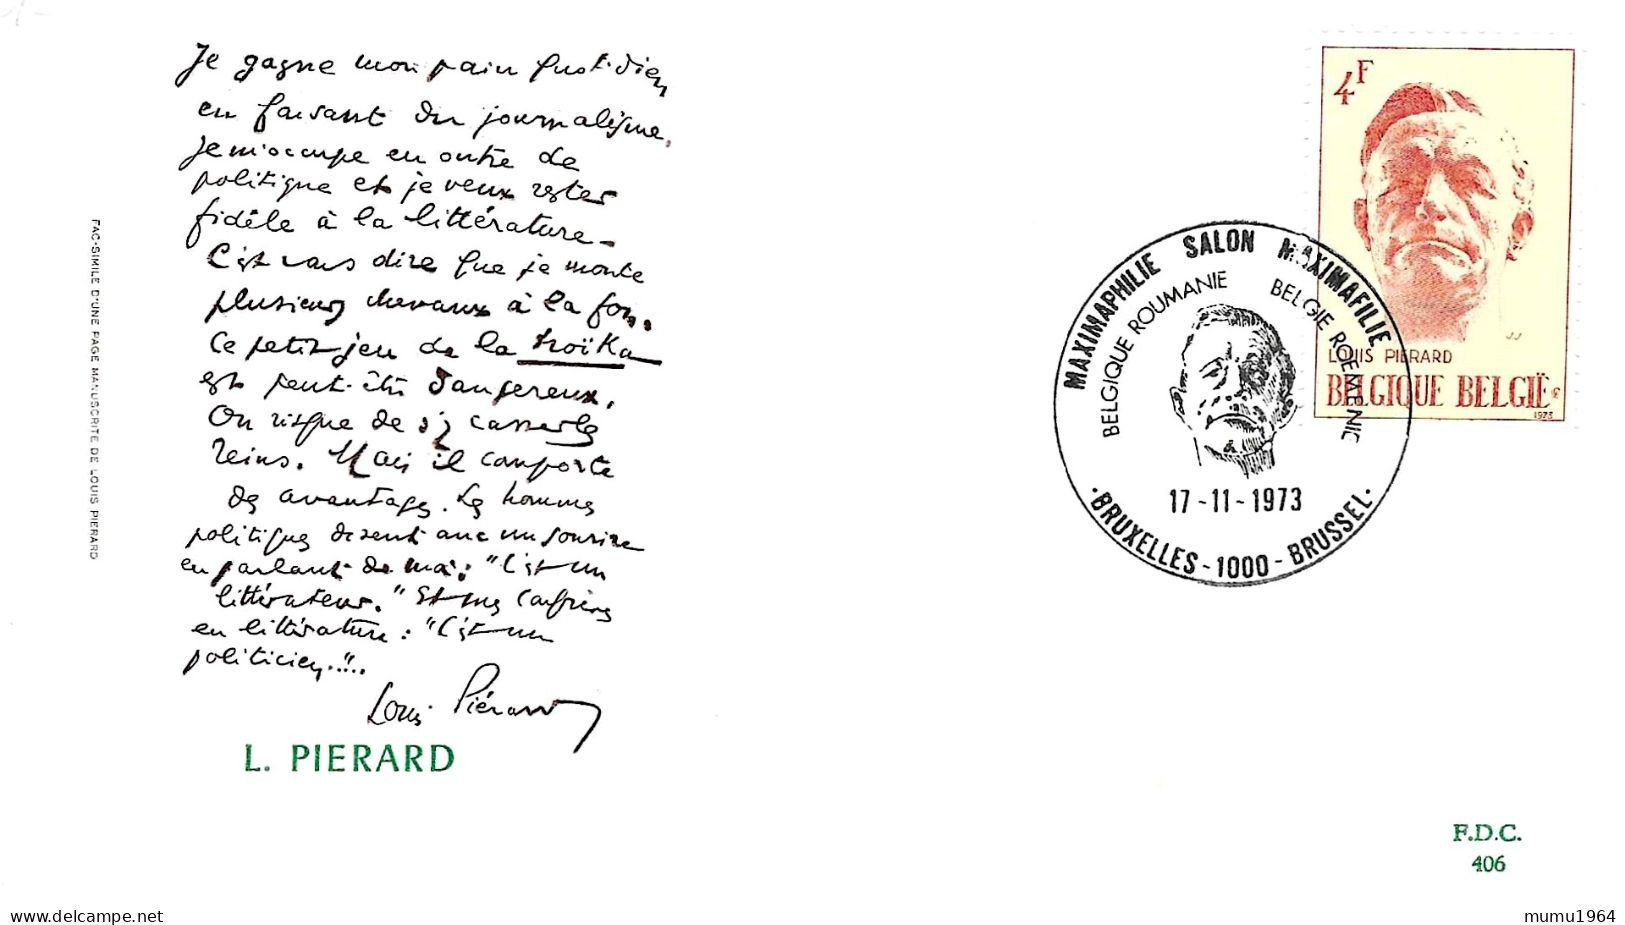 Je gagne mon pain quotidien
en faisant du journalisme,
je m'occupe en outre de
politique et je veux rester
fidèle à la littérature –
C'est vous dire que je monte
plusieurs chevaux à la fois.
Ce petit jeu de la troïka
est peut-être dangereux.
On risque de s'y casser les
reins. Mais il comporte
des avantages. Les hommes
politiques disent avec un sourire
en parlant de moi : "C'est un
littérateur." Et mes confrères
en littérature : "C'est un
politicien."...
Louis Piérard
L. PIERARD
FAC-SIMILE D'UNE PAGE MANUSCRITE DE LOUIS PIERARD
MAXIMAPHILIE SALON MAXIMAFILIE
BELGIQUE ROUMANIE BELGIE ROEMENIE
17-11-1973
·BRUXELLES-1000-BRUSSEL·
4F
LOUIS PIÉRARD
BELGIQUE BELGIË
1973
F.D.C.
406
delcampe.net
mumu1964